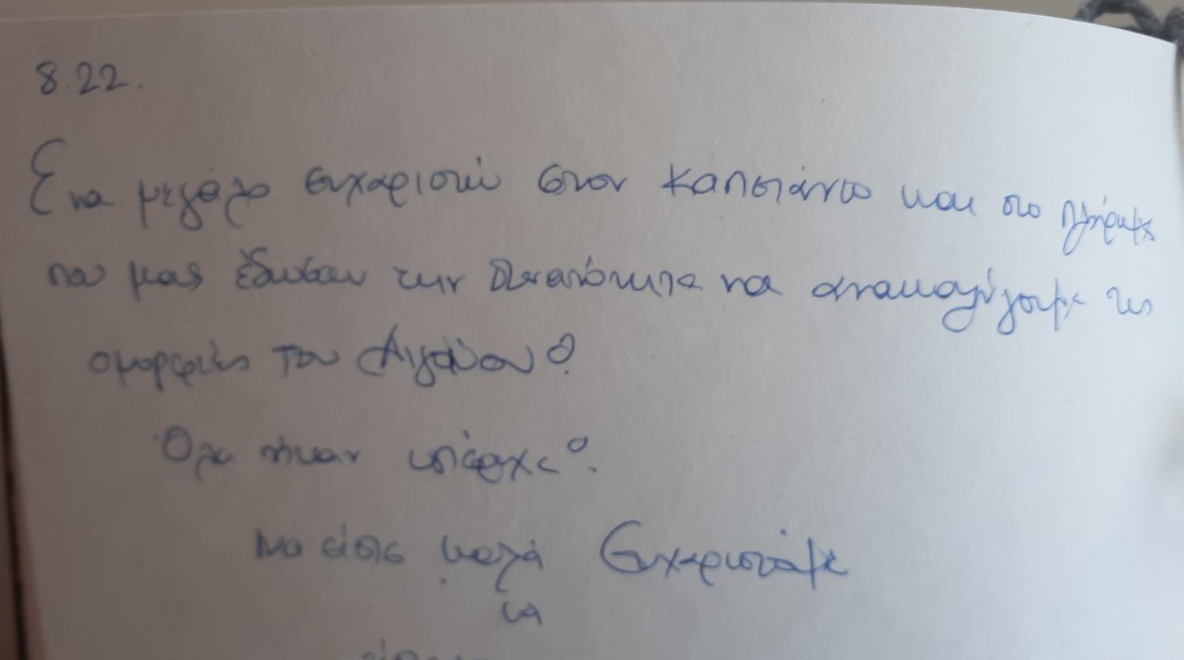 8.22.
Ενα μεγάλο ευχαριστώ στον καπετάνιο και στο πλήρωμα
που μας έδωσαν την δυνατότητα να ανακαλύψουμε τις
ομορφιές του Αιγαίου!
Όλα ήταν υπέροχα!
Να είστε καλά Ευχαριστούμε